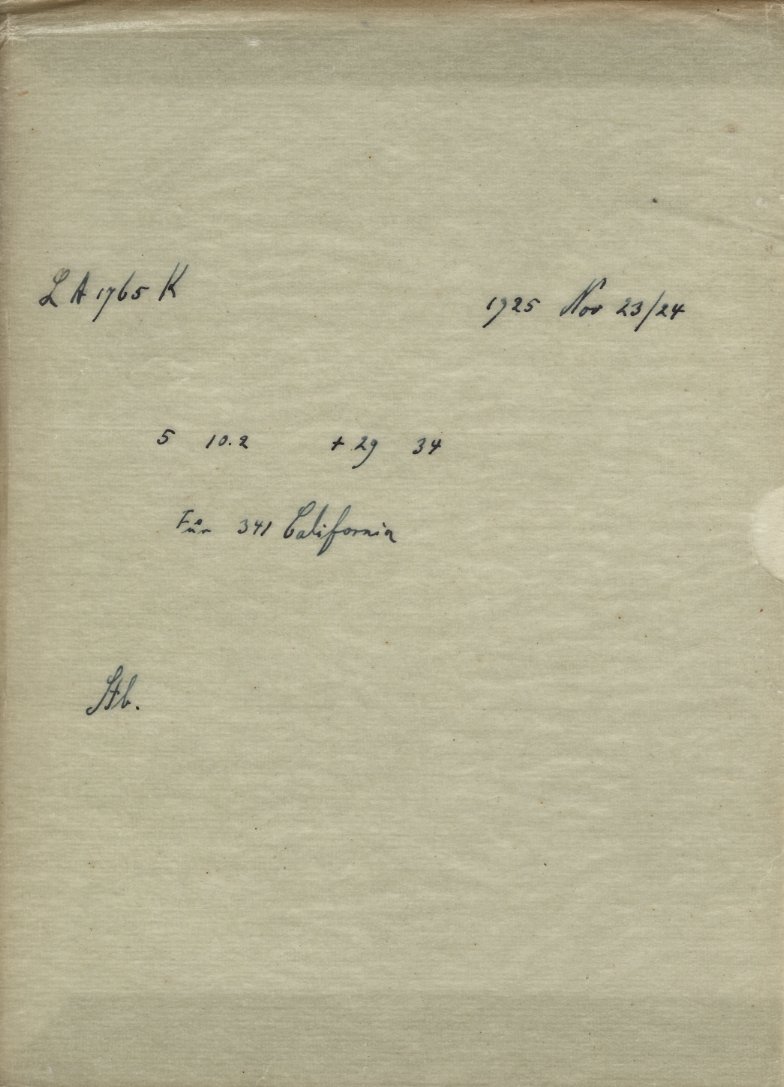 L A 1765 K
1925 Nov 23/24
5 10.2 + 29 34
Für 341 California
Stb.